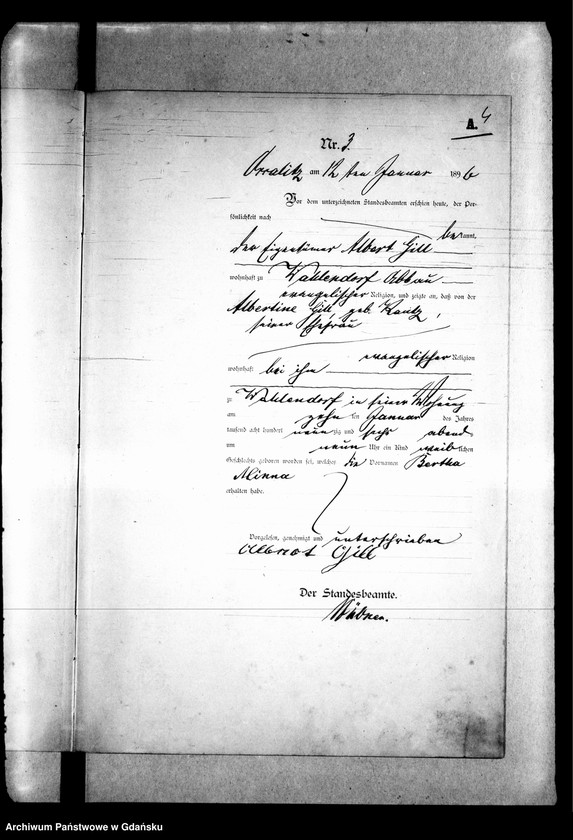 A. 4
Nr. 3.
am 12 ten Januar 1896
Vor dem unterzeichneten Standesbeamten erschien heute, der Per-
sönlichkeit nach
bekannt,
der Eigentümer Albert Gill
wohnhaft zu Wahlendorf Abbau
evangelischer Religion, und zeigte an, daß von der
Albertine Gill, geb. Kautz,
seiner Ehefrau
evangelischer Religion
wohnhaft bei ihm
zu Wahlendorf in seiner Wohnung
am zehn ten Januar des Jahres
tausend acht hundert neun zig und sechs abend
um neun Uhr ein Kind weiblichen
Geschlechts geboren worden sei, welches die Vornamen Bertha
Minna
erhalten habe.
Vorgelesen, genehmigt und unterschrieben
Albert Gill
Der Standesbeamte.
Archiwum Państwowe w Gdańsku